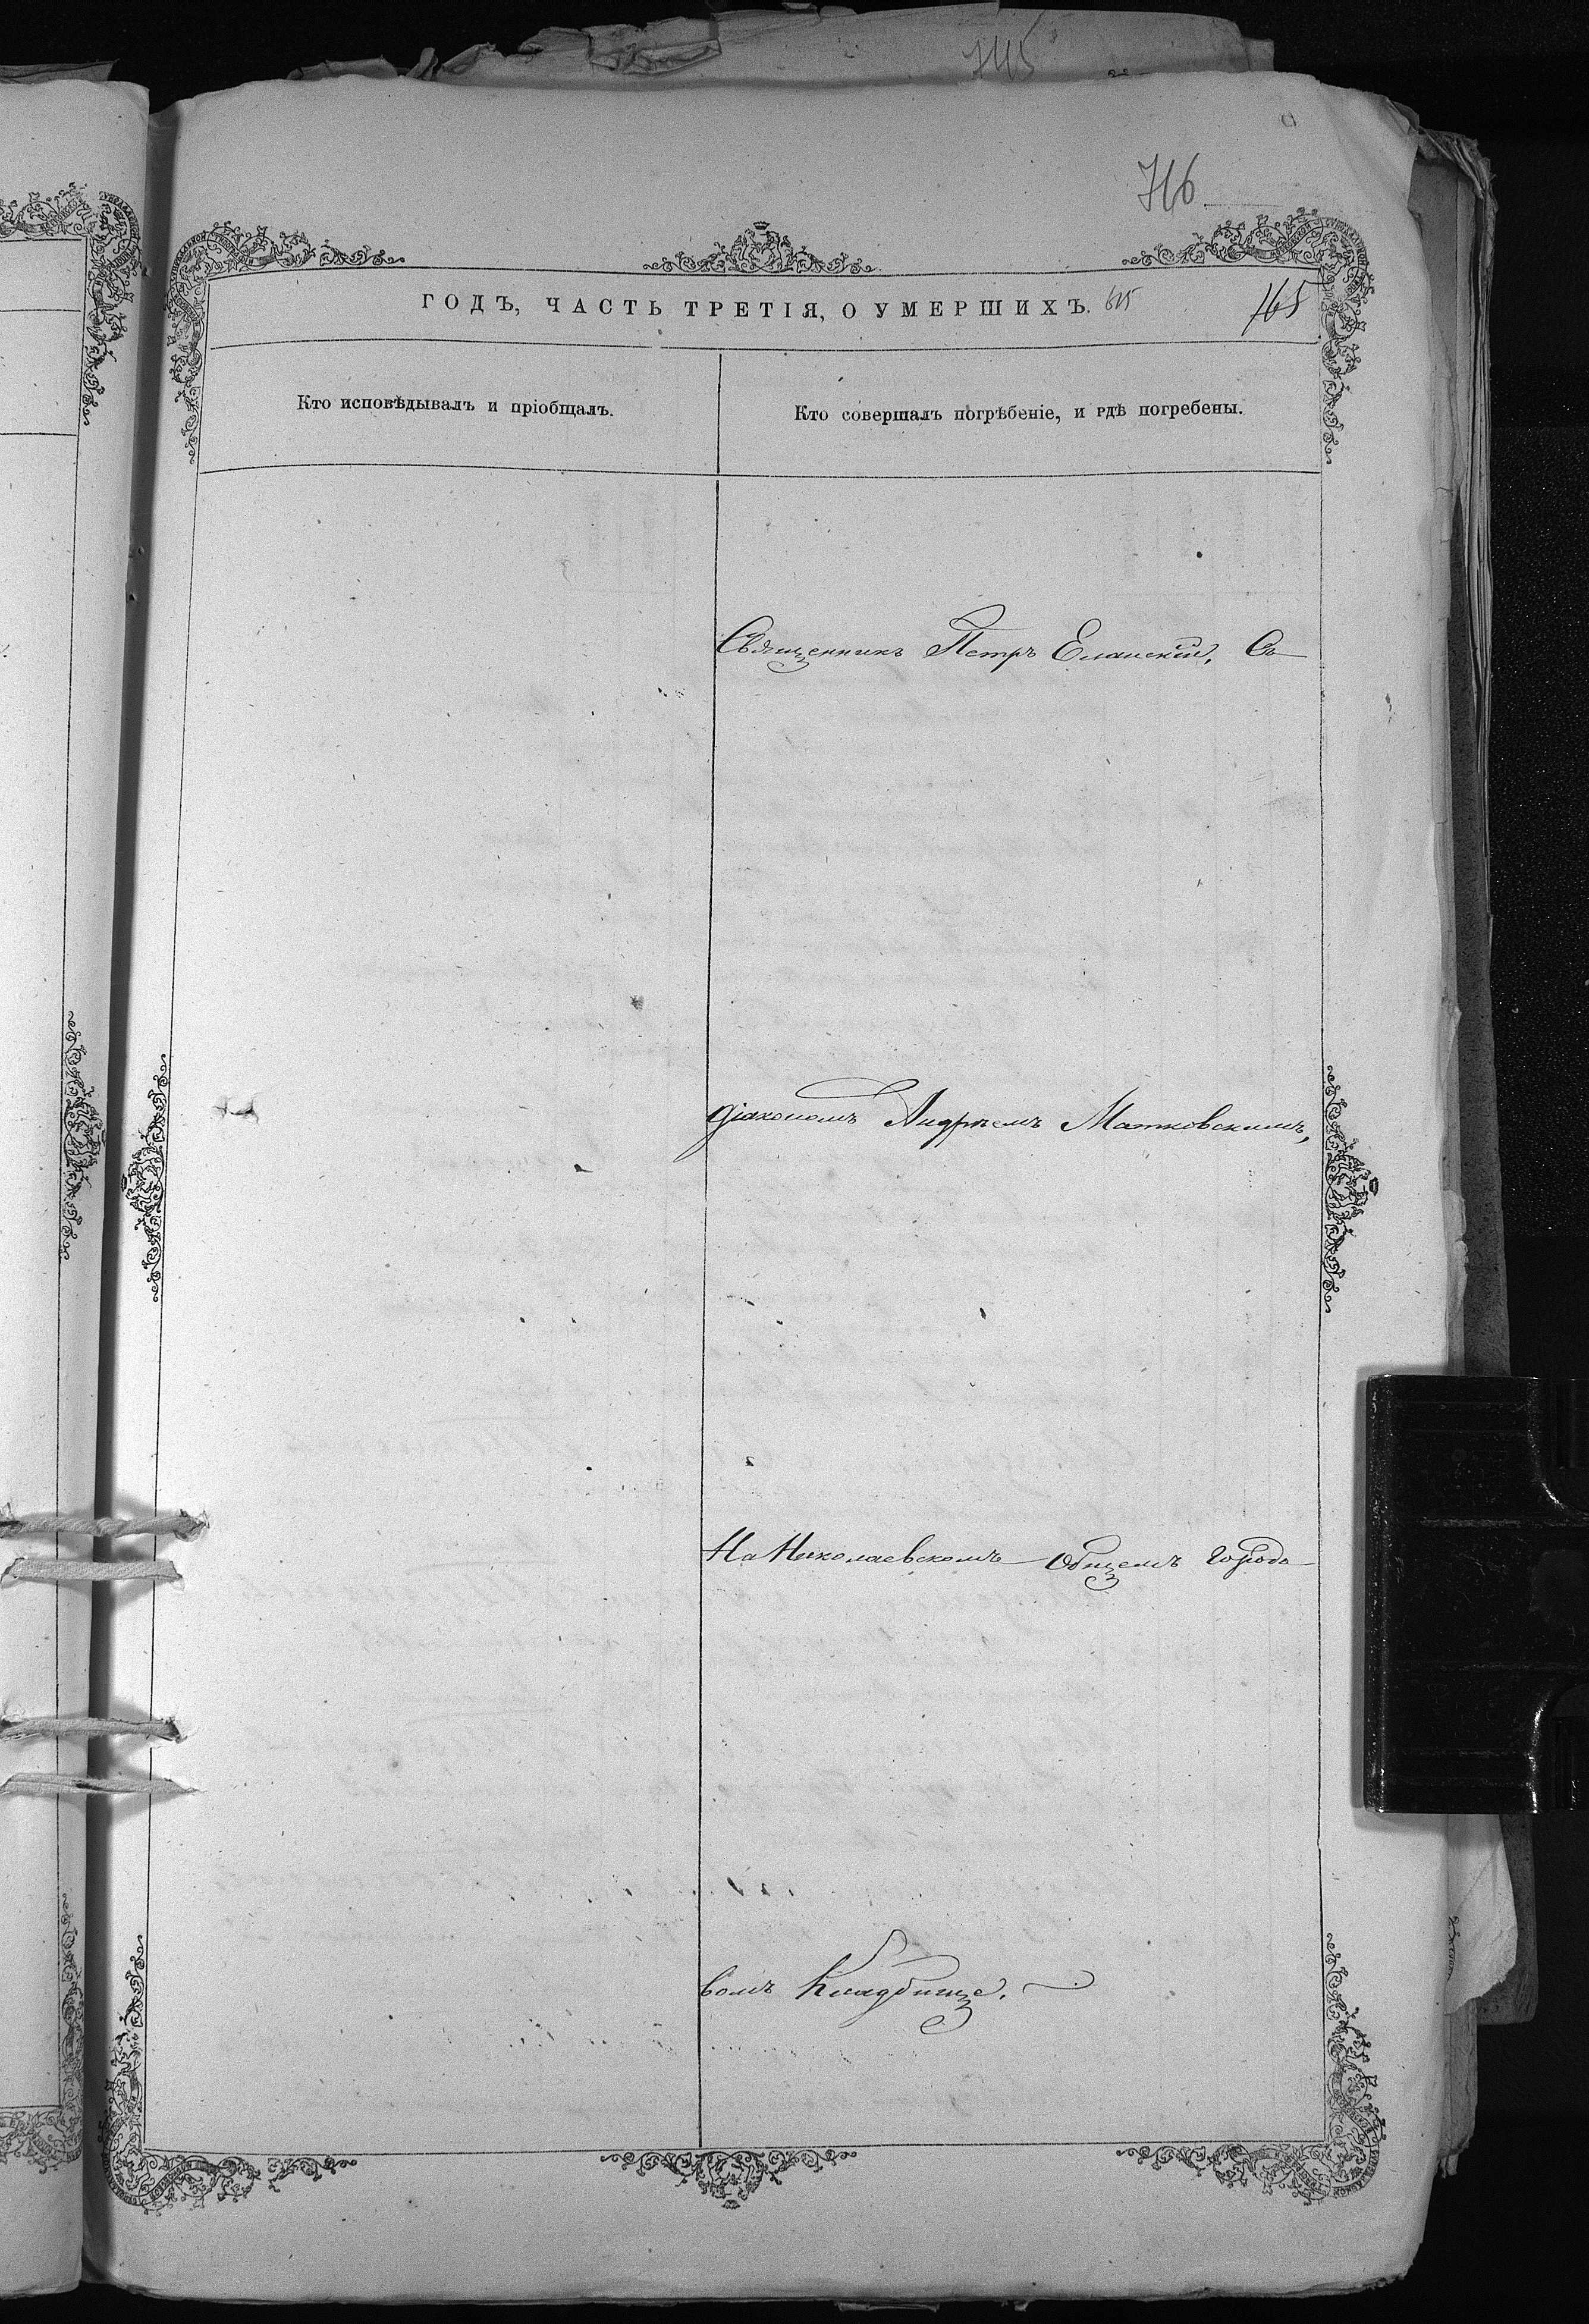 745
746
ГОДЪ, ЧАСТЬ ТРЕТІЯ, О УМЕРШИХЪ. 615 765
Кто исповѣдывалъ и пріобщалъ.
Кто совершалъ погрѣбеніе, и гдѣ погребены.
Священникъ Петръ Еланскій, Съ
діакономъ Андреемъ Матковскимъ,
На Николаевскомъ Общемъ Городо
вомъ Кладбище.